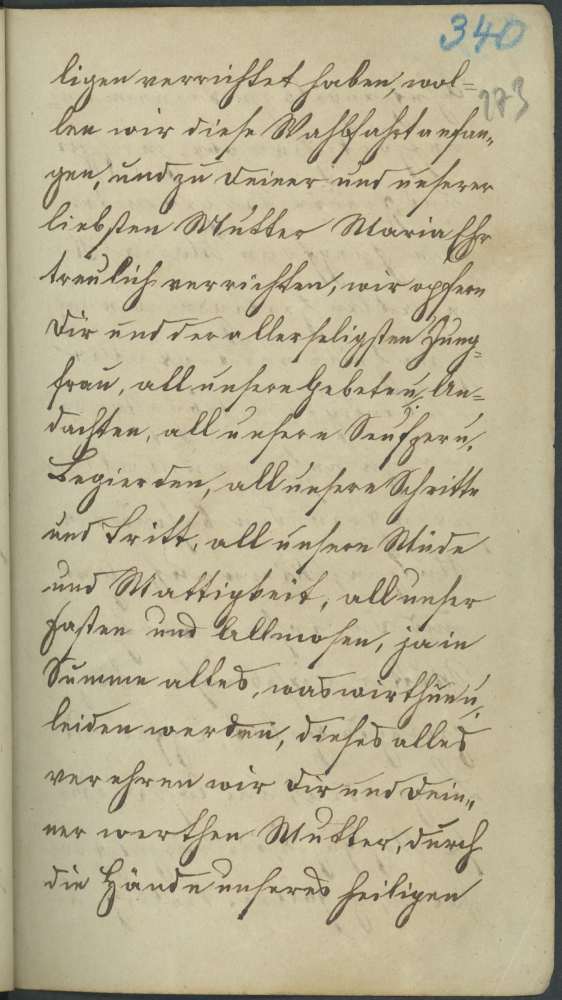 340
173
ligen verrichtet haben, wol=
len wir diese Wahlfahrt anfan„
gen, und zu Deiner und unserer
liebsten Mutter Maria Ehr
treulich verrichten, wir opfern
Dir und der allerseligsten Jung=
frau, all unsere Gebete u. An=
dachten, all unsere Seufzer u.
Begierden, all unsere Schritte
und Tritt, all unsere Müde
und Mattigkeit, all unser
Fasten und Allmosen, ja in
Summe alles, was wir thun u.
leiden werden, dieses alles
verehren wir Dir und Dein„
ner werthen Mutter, durch
die Hände unseres heiligen